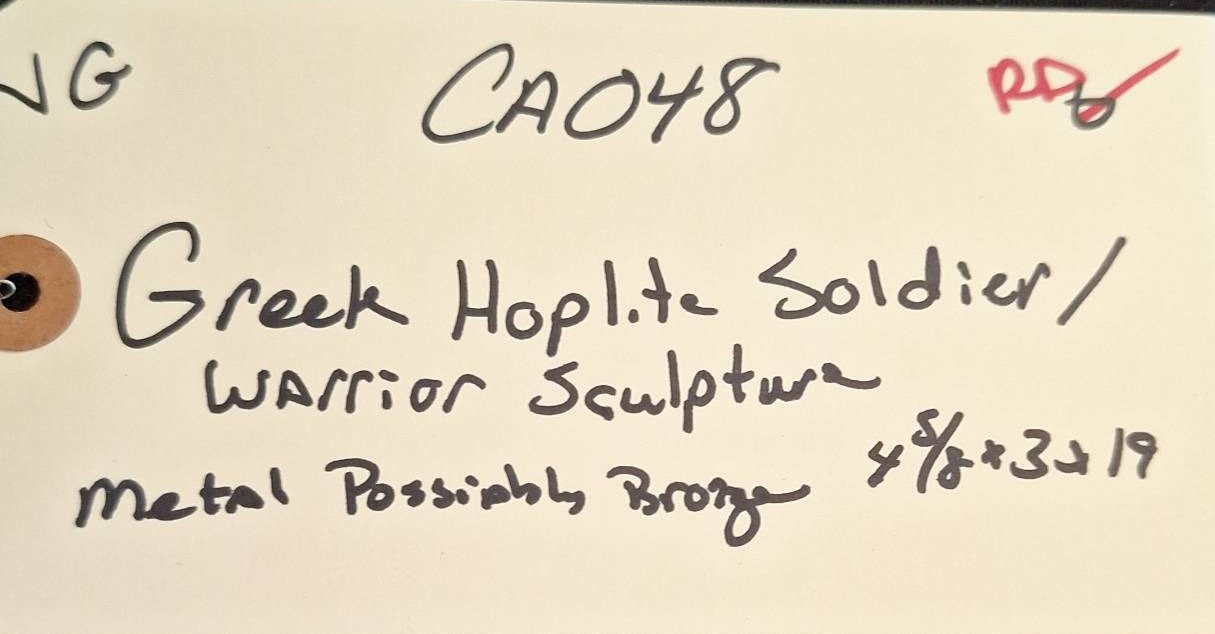 VG CA048 RD
Greek Hoplite Soldier/
Warrior Sculpture
Metal Possibbly Bronze 4 5/8 x 3 x 19